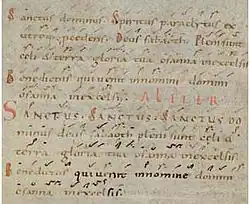 Sanctus dominus. Spiritus paraclitus ex
utroque procedens. Deus sabaoth. Pleni sunt
celi & terra gloria tua osanna inexcelsis.
Benedictus qui uenit innomini domini
osanna inexcelsis. ALITER
SANCTUS. SANCTUS. SANCTUS DO
minus deus sabaoth pleni sunt celi &
terra gloria tua osanna inexcelsis
Benedictus qui uenit innomine domini
osanna inexcelsis.